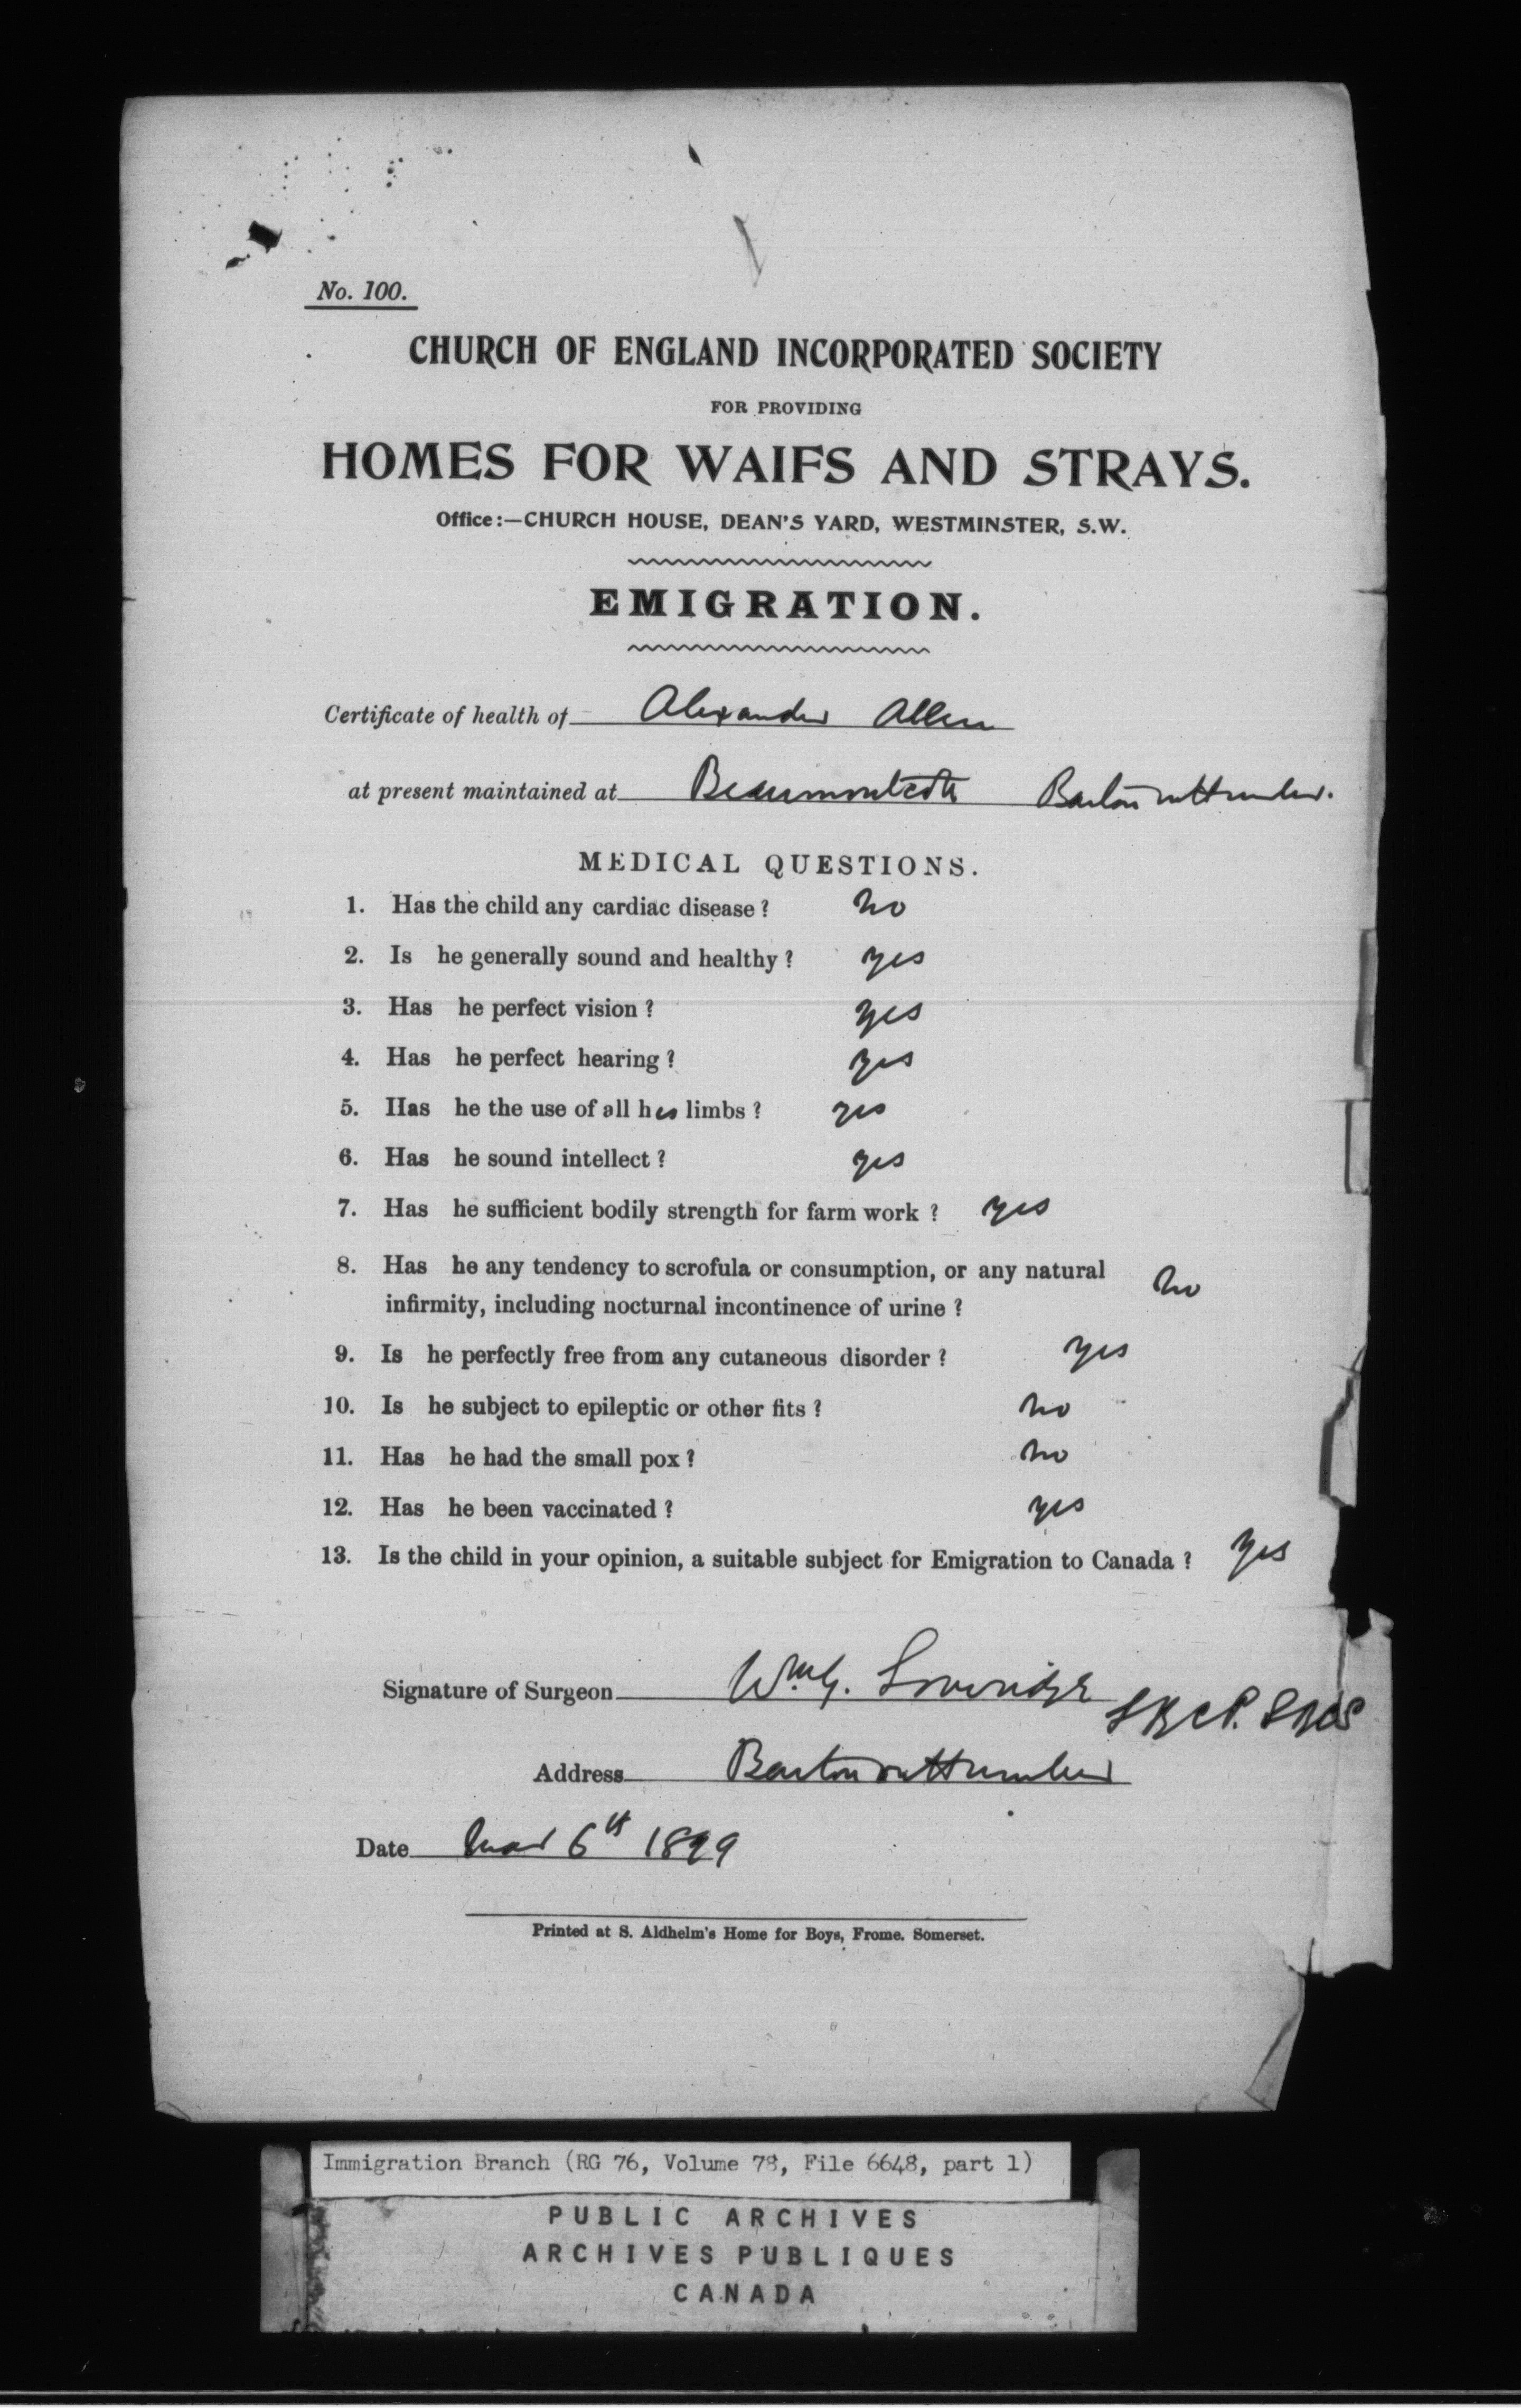 No. 100.
CHURCH OF ENGLAND INCORPORATED SOCIETY
FOR PROVIDING
HOMES FOR WAIFS AND STRAYS.
Office:—CHURCH HOUSE, DEAN'S YARD, WESTMINSTER, S.W.
EMIGRATION.
Certificate of health of Alexander Allen
at present maintained at Barton on Humber.
MEDICAL QUESTIONS.
1. Has the child any cardiac disease? No
2. Is he generally sound and healthy? yes
3. Has he perfect vision? yes
4. Has he perfect hearing? yes
5. Has he the use of all his limbs? yes
6. Has he sound intellect? yes
7. Has he sufficient bodily strength for farm work? yes
8. Has he any tendency to scrofula or consumption, or any natural
infirmity, including nocturnal incontinence of urine? No
9. Is he perfectly free from any cutaneous disorder? yes
10. Is he subject to epileptic or other fits? No
11. Has he had the small pox? No
12. Has he been vaccinated? yes
13. Is the child in your opinion, a suitable subject for Emigration to Canada? Yes
Signature of Surgeon Wm. G. Loveridge
LRCP. LRCS
Address Barton on Humber
Date Mar 6th 1899
Printed at S. Aldhelm's Home for Boys, Frome. Somerset.
Immigration Branch (RG 76, Volume 78, File 6648, part 1)
PUBLIC ARCHIVES
ARCHIVES PUBLIQUES
CANADA